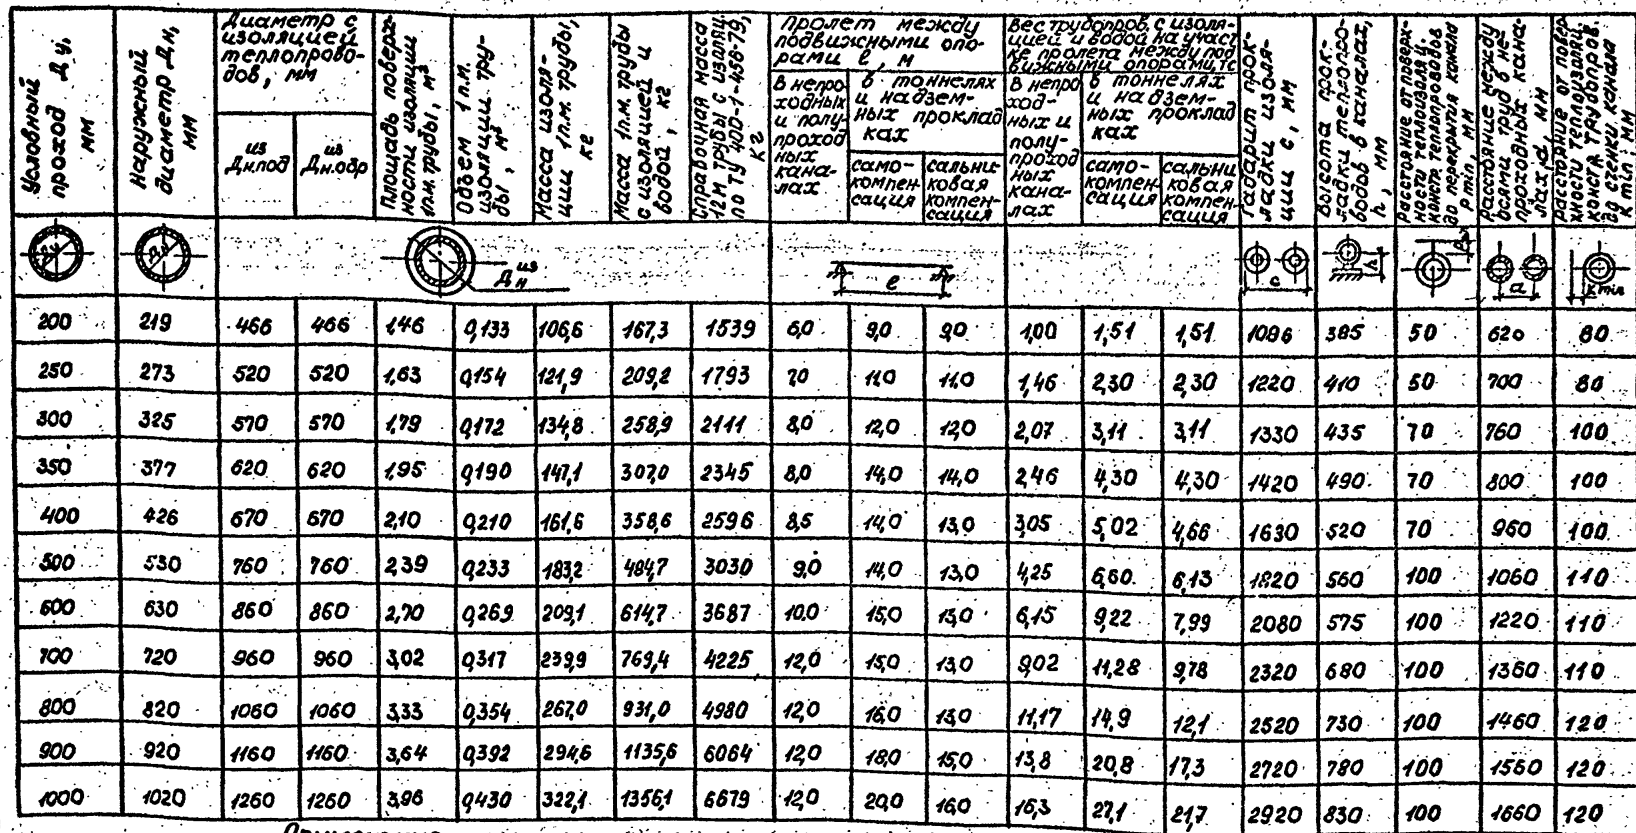 Условный проход Ду, мм
Наружный диаметр Дн, мм
Диаметр с изоляцией теплопроводов, мм
из Дн.под
из Дн.обр
Площадь поверхности изоляции 1п.м.трубы, м²
Объем 1п.м. изоляции трубы, м³
Масса изоляции 1п.м. трубы, кг
Масса 1п.м. трубы с изоляцией и водой, кг
Справочная масса 12м трубы с изоляц. по ТУ 400-1-458-79, кг
Пролет между подвижными опорами ℓ, м
в непроходных и полупроходных каналах
в тоннелях и надземных прокладках
самокомпенсация
сальниковая компенсация
Вес трубопров. с изоляцией и водой на участке пролета между подвижными опорами, тс
в непроходных и полупроходных каналах
в тоннелях и надземных прокладках
самокомпенсация
сальниковая компенсация
Габарит прокладки изоляции с, мм
Высота прокладки теплопроводов в каналах, h, мм
Расстояние от поверхности теплоизоляц. констр. теплопроводов до перекрытия канала P min, мм
Расстояние между осями труб в непроходных каналах, а, мм
Расстояние от поверхности теплоизоляц. констр. трубопров. до стенки канала K min, мм
Ду Дн Дн из ℓ c h P a K min
200 219 466 466 1,46 0,133 106,6 167,3 1539 6,0 9,0 9,0 1,00 1,51 1,51 1086 385 50 620 80
250 273 520 520 1,63 0,154 121,9 209,2 1793 7,0 11,0 11,0 1,46 2,30 2,30 1220 410 50 700 80
300 325 570 570 1,79 0,172 134,8 258,9 2111 8,0 12,0 12,0 2,07 3,11 3,11 1330 435 70 760 100
350 377 620 620 1,95 0,190 147,1 307,0 2345 8,0 14,0 14,0 2,46 4,30 4,30 1420 490 70 800 100
400 426 670 670 2,10 0,210 161,6 358,6 2596 8,5 14,0 13,0 3,05 5,02 4,66 1630 520 70 960 100
500 530 760 760 2,39 0,233 183,2 484,7 3030 9,0 14,0 13,0 4,25 6,60 6,13 1820 560 100 1060 110
600 630 860 860 2,70 0,269 209,1 614,7 3687 10,0 15,0 13,0 6,15 9,22 7,99 2080 575 100 1220 110
700 720 960 960 3,02 0,317 239,9 769,4 4225 12,0 15,0 13,0 9,02 11,28 9,78 2320 680 100 1360 110
800 820 1060 1060 3,33 0,354 267,0 931,0 4980 12,0 16,0 13,0 11,17 14,9 12,1 2520 730 100 1460 120
900 920 1160 1160 3,64 0,392 294,6 1135,6 6064 12,0 18,0 15,0 13,8 20,8 17,3 2720 780 100 1560 120
1000 1020 1260 1260 3,96 0,430 322,1 1356,1 6679 12,0 20,0 16,0 16,3 27,1 21,7 2920 830 100 1660 120